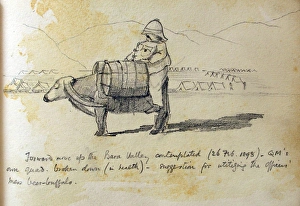 Forward move up the Bara Valley contemplated (26 Feb. 1898) - Q.M's
own quad. broken down (in health) - suggestion for utilizing the officers'
mess beer-buffalo.